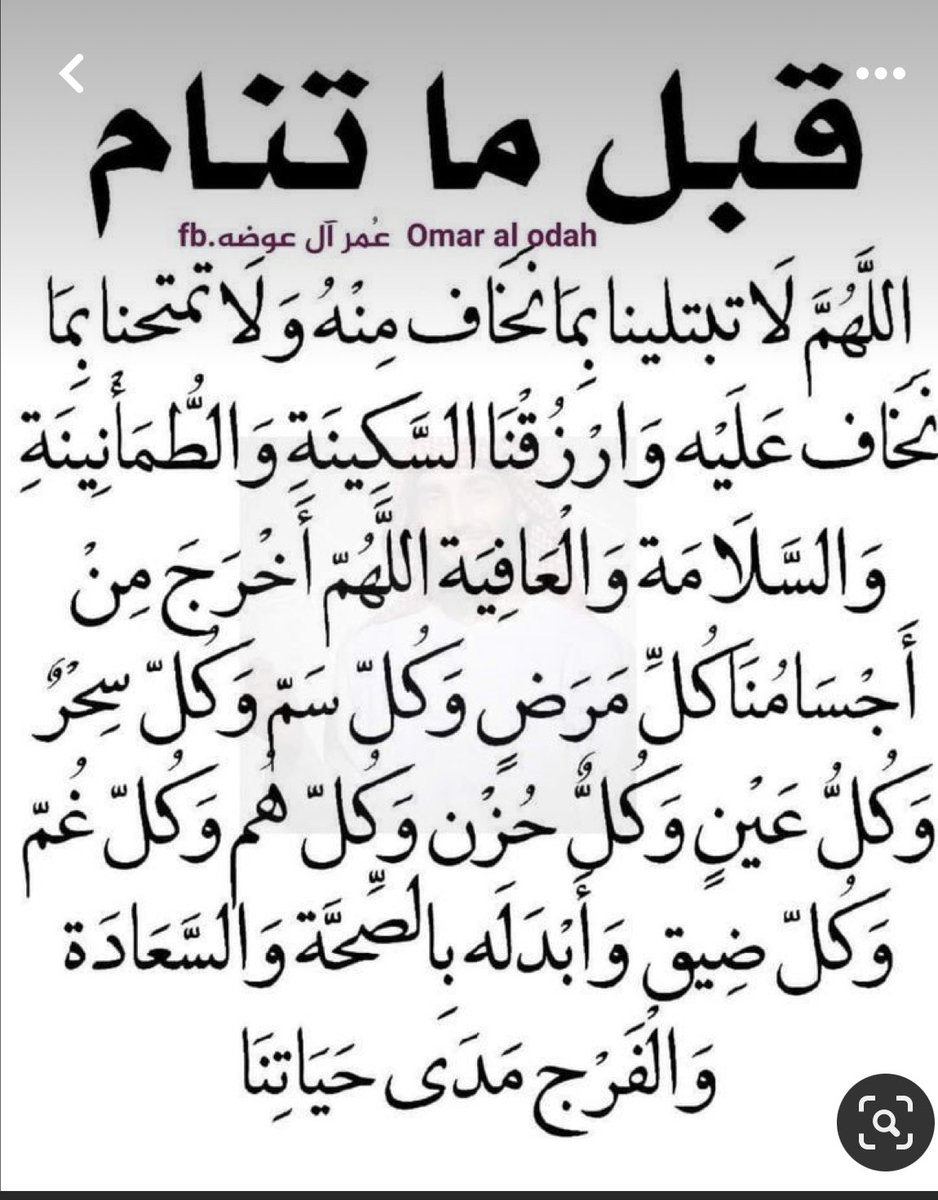 قبل ما تنام
fb.عُمر آل عوضه Omar al odah
اللَّهُمَّ لَا تبتلينا بِمَا نَخَاف مِنْهُ وَلَا تمتحنا بِمَا
نَخَاف عَلَيْه وَارْزُقْنَا السَّكِينَةِ وَالطُّمَأْنِينَةِ
وَالسَّلَامَة وَالْعَافِيَة اللَّهُمّ أَخْرَجَ مِنْ
أَجْسَامُنَا كُلِّ مَرَضٍ وَكُلّ سَمّ وَكُلّ سِحْرٌ
وَكُلُّ عَيْنٍ وَكُلٌّ حُزْن وَكُلّ هُم وَكُلّ غُمّ
وَكُلّ ضِيق وَأَبْدَلَه بِالصِّحَّة وَالسَّعَادَة
وَالْفَرْج مَدَى حَيَاتِنَا